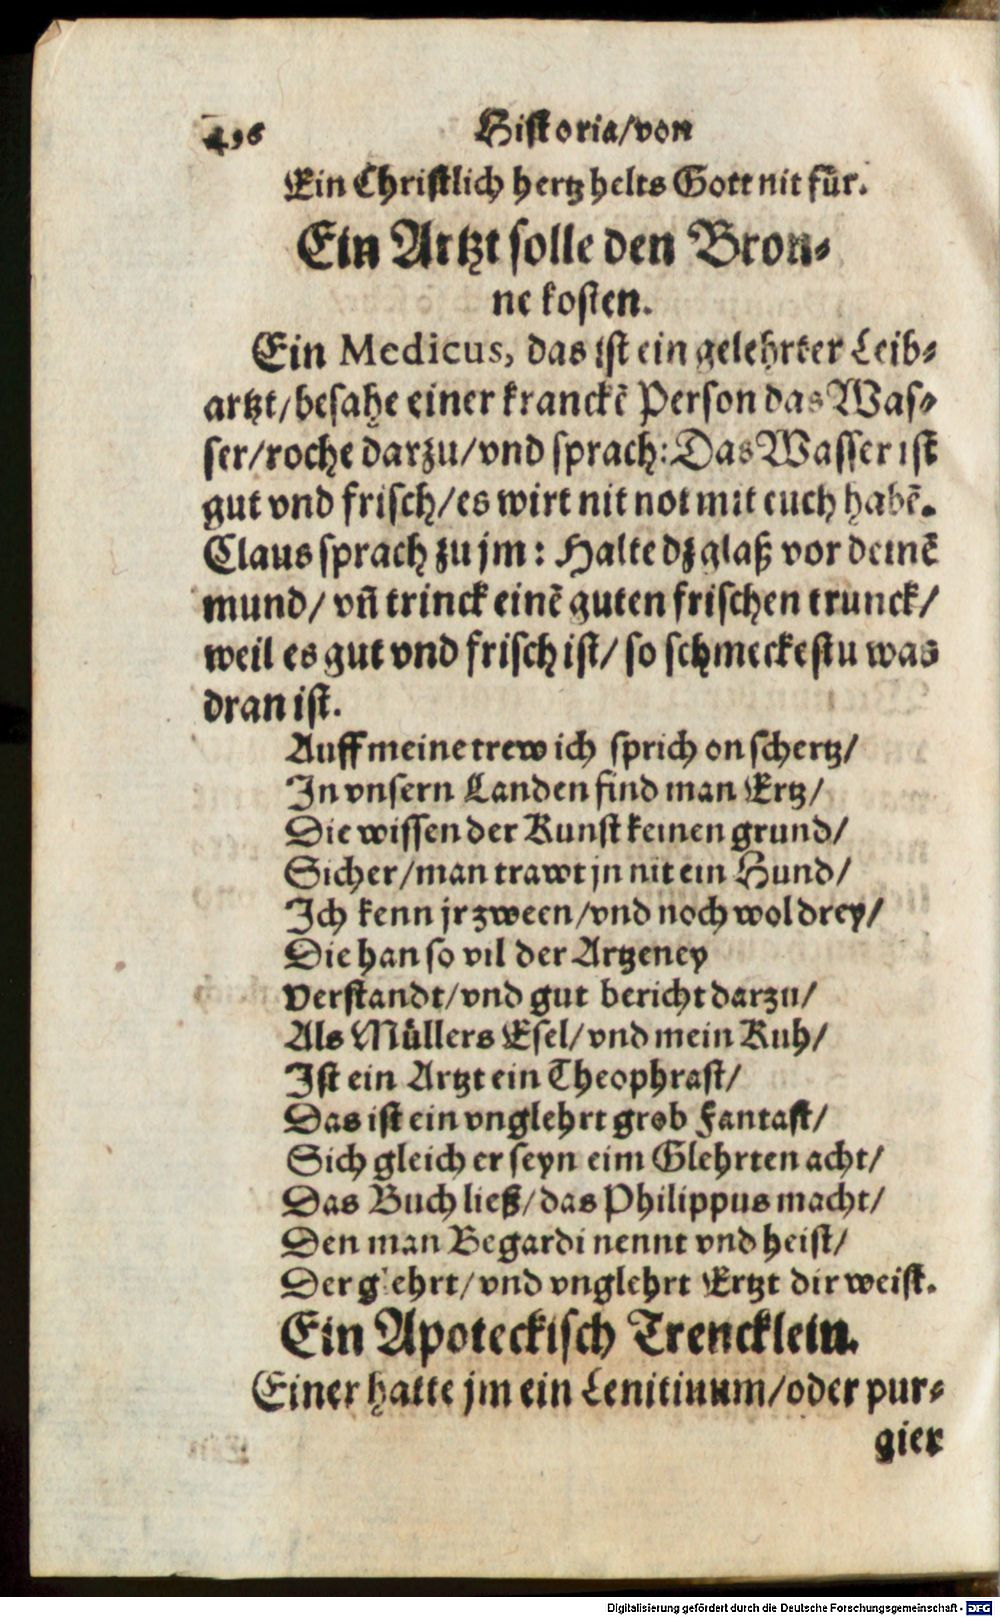 496 Historia/von
Ein Christlich hertz helts Gott nit für.
Ein Artzt solle den Bron⸗
ne kosten.
Ein Medicus, das ist ein gelehrter Leib⸗
artzt/besahe einer kranckẽ Person das Was⸗
ser/roche darzu/vnd sprach: Das Wasser ist
gut vnd frisch/es wirt nit not mit euch habẽ.
Claus sprach zu jm: Halte dz glaß vor deinẽ
mund/ vñ trinck einẽ guten frischen trunck/
weil es gut vnd frisch ist/ so schmeckestu was
dran ist.
Auff meine trew ich sprich on schertz/
In vnsern Landen find man Ertz/
Die wissen der Kunst keinen grund/
Sicher/man trawt jn nit ein Hund/
Ich kenn jr zween/vnd noch wol drey/
Die han so vil der Artzeney
Verstandt/vnd gut bericht darzu/
Als Müllers Esel/vnd mein Kuh/
Ist ein Artzt ein Theophrast/
Das ist ein vnglehrt grob Fantast/
Sich gleich er seyn eim Glehrten acht/
Das Buch ließ/das Philippus macht/
Den man Begardi nennt vnd heist/
Der glehrt/vnd vnglehrt Ertzt dir weist.
Ein Apoteckisch Trencklein.
Einer hatte jm ein Lenitiuum/oder pur⸗
gier
Digitalisierung gefördert durch die Deutsche Forschungsgemeinschaft - DFG